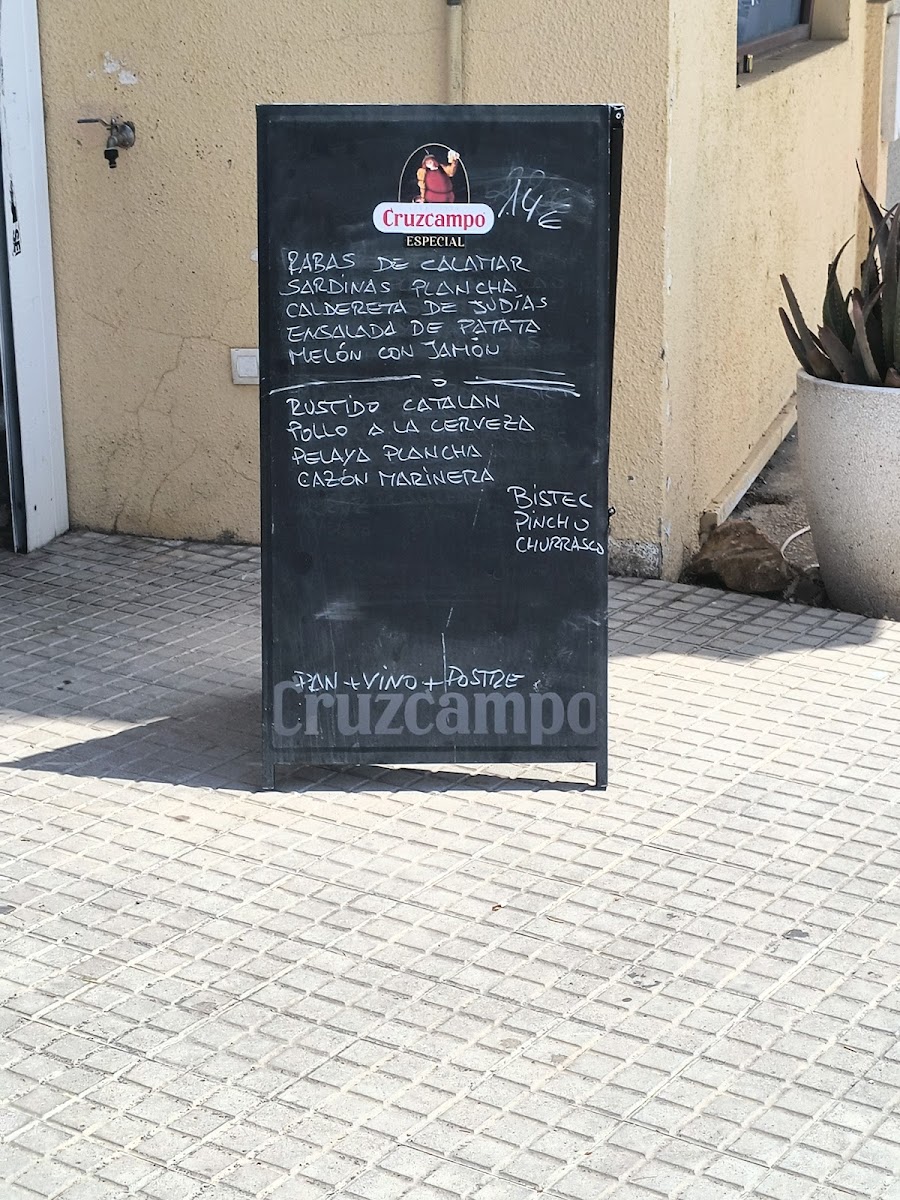 Cruzcampo
ESPECIAL
14€
RABAS DE CALAMAR
SARDINAS PLANCHA
CALDERETA DE JUDÍAS
ENSALADA DE PATATA
MELÓN CON JAMÓN
RUSTIDO CATALAN
POLLO A LA CERVEZA
PELAYA PLANCHA
CAZÓN MARINERA
BISTEC
PINCHO
CHURRASCO
PAN + VINO + POSTRE
Cruzcampo